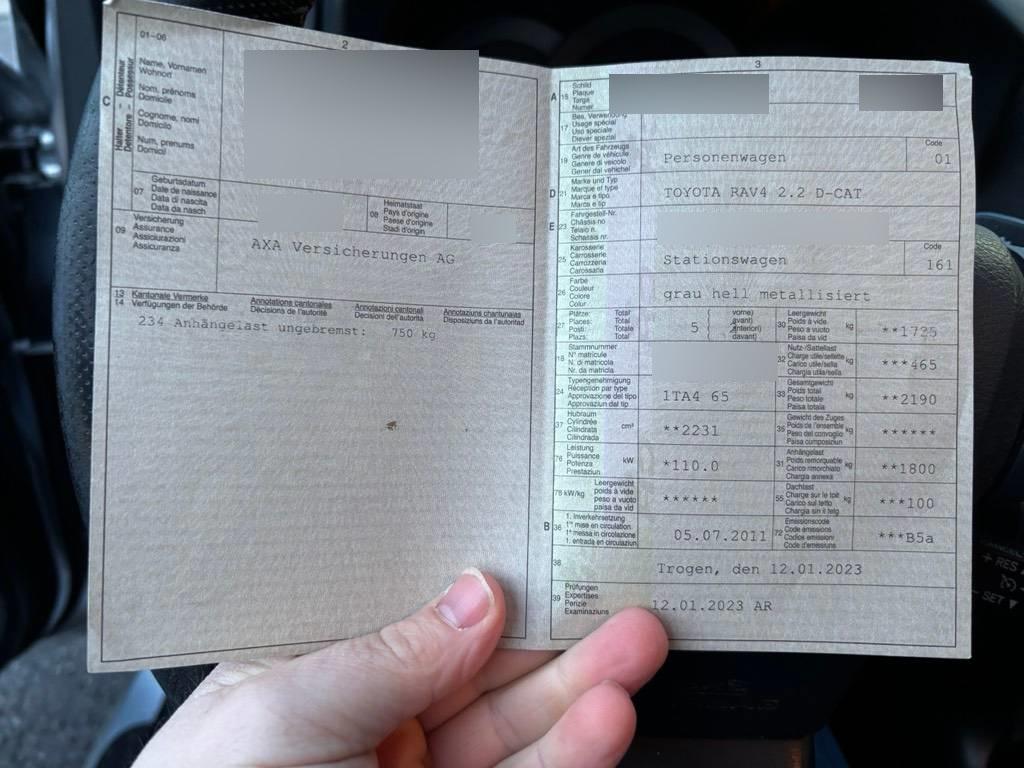 2
01-06
C
Halter Détenteur
Detentore Possessur
Name, Vornamen
Wohnort
Nom, prénoms
Domicile
Cognome, nomi
Domicilio
Num, prenums
Domicil
07
Geburtsdatum
Date de naissance
Data di nascita
Data da nasch
08
Heimatstaat
Pays d'origine
Paese d'origine
Stadi d'origin
09
Versicherung
Assurance
Assicurazioni
Assicuranza
AXA Versicherungen AG
13
14
Kantonale Vermerke
Verfügungen der Behörde
Annotations cantonales
Décisions de l'autorité
Annotazioni cantonali
Decisioni dell'autorità
Annotaziuns chantunalas
Disposiziuns da l'autoritad
234 Anhängelast ungebremst: 750 kg
3
A 15
Schild
Plaque
Targa
Numer
17
Bes. Verwendung
Usage spécial
Uso speciale
Diever spezial
19
Art des Fahrzeugs
Genre de véhicule
Genere di veicolo
Gener dal vehichel
Personenwagen
Code
01
D 21
Marke und Typ
Marque et type
Marca e tipo
Marca e tip
TOYOTA RAV4 2.2 D-CAT
E 23
Fahrgestell-Nr.
Châssis no
Telaio n.
Schassis nr.
25
Karosserie
Carrosserie
Carrozzeria
Carossaria
Stationswagen
Code
161
26
Farbe
Couleur
Colore
Colur
grau hell metallisiert
27
Plätze: Total
Places: Total
Posti: Totale
Plazs: Total
5
vorne)
avant)
anteriori)
davant)
30
Leergewicht
Poids à vide
Peso a vuoto
Paisa da vid
kg
**1725
18
Stammnummer
N° matricule
N. di matricola
Nr. da matricla
32
Nutz-/Sattellast
Charge utile/sellette
Carico utile/sella
Chargia utila/sella
kg
***465
24
Typengenehmigung
Réception par type
Approvazione del tipo
Approvaziun dal tip
1TA4 65
33
Gesamtgewicht
Poids total
Peso totale
Paisa totala
kg
**2190
37
Hubraum
Cylindrée
Cilindrata
Cilindrada
cm³
**2231
35
Gewicht des Zuges
Poids de l'ensemble
Peso del convoglio
Paisa cumposiziun
kg
******
76
Leistung
Puissance
Potenza
Prestaziun
kW
*110.0
31
Anhängelast
Poids remorquable
Carico rimorchiato
Chargia annexa
kg
**1800
78 kW/kg
Leergewicht
poids à vide
peso a vuoto
paisa da vid
******
55
Dachlast
Charge sur le toit
Carico sul tetto
Chargia sin il tetg
kg
***100
B 36
1. Inverkehrsetzung
1re mise en circulation
1a messa in circolazione
1. entrada en circulaziun
05.07.2011
72
Emissionscode
Code émissions
Codice emissioni
Code d'emissiuns
***B5a
38
Trogen, den 12.01.2023
39
Prüfungen
Expertises
Perizie
Examinaziuns
12.01.2023 AR
+ RES
- SET